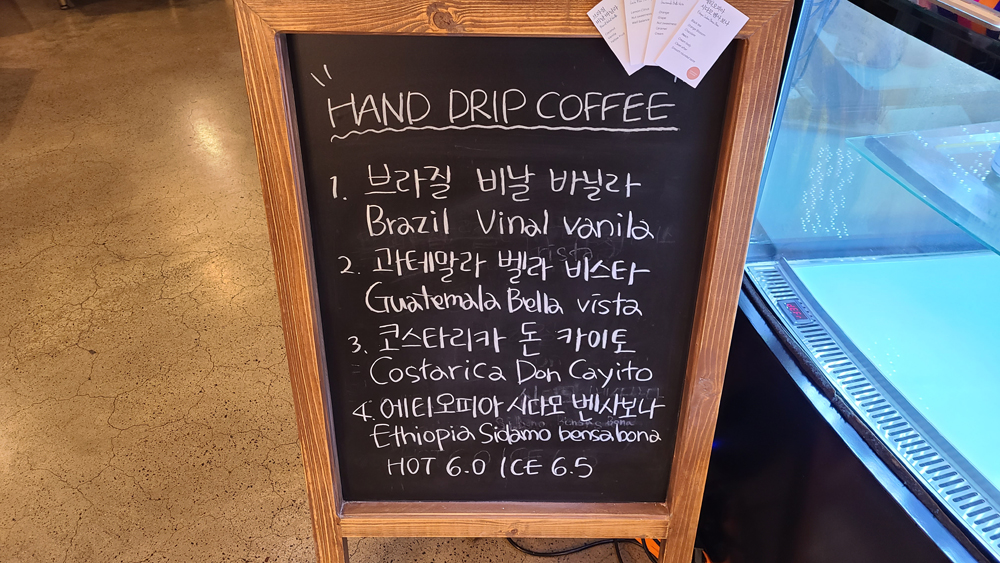 HAND DRIP COFFEE
1. 브라질 비날 바닐라
Brazil Vinal vanila
2. 과테말라 벨라 비스타
Guatemala Bella vista
3. 코스타리카 돈 카이토
Costarica Don Cayito
4. 에티오피아 시다모 벤사보나
Ethiopia Sidamo bensabona
HOT 6.0 / ICE 6.5